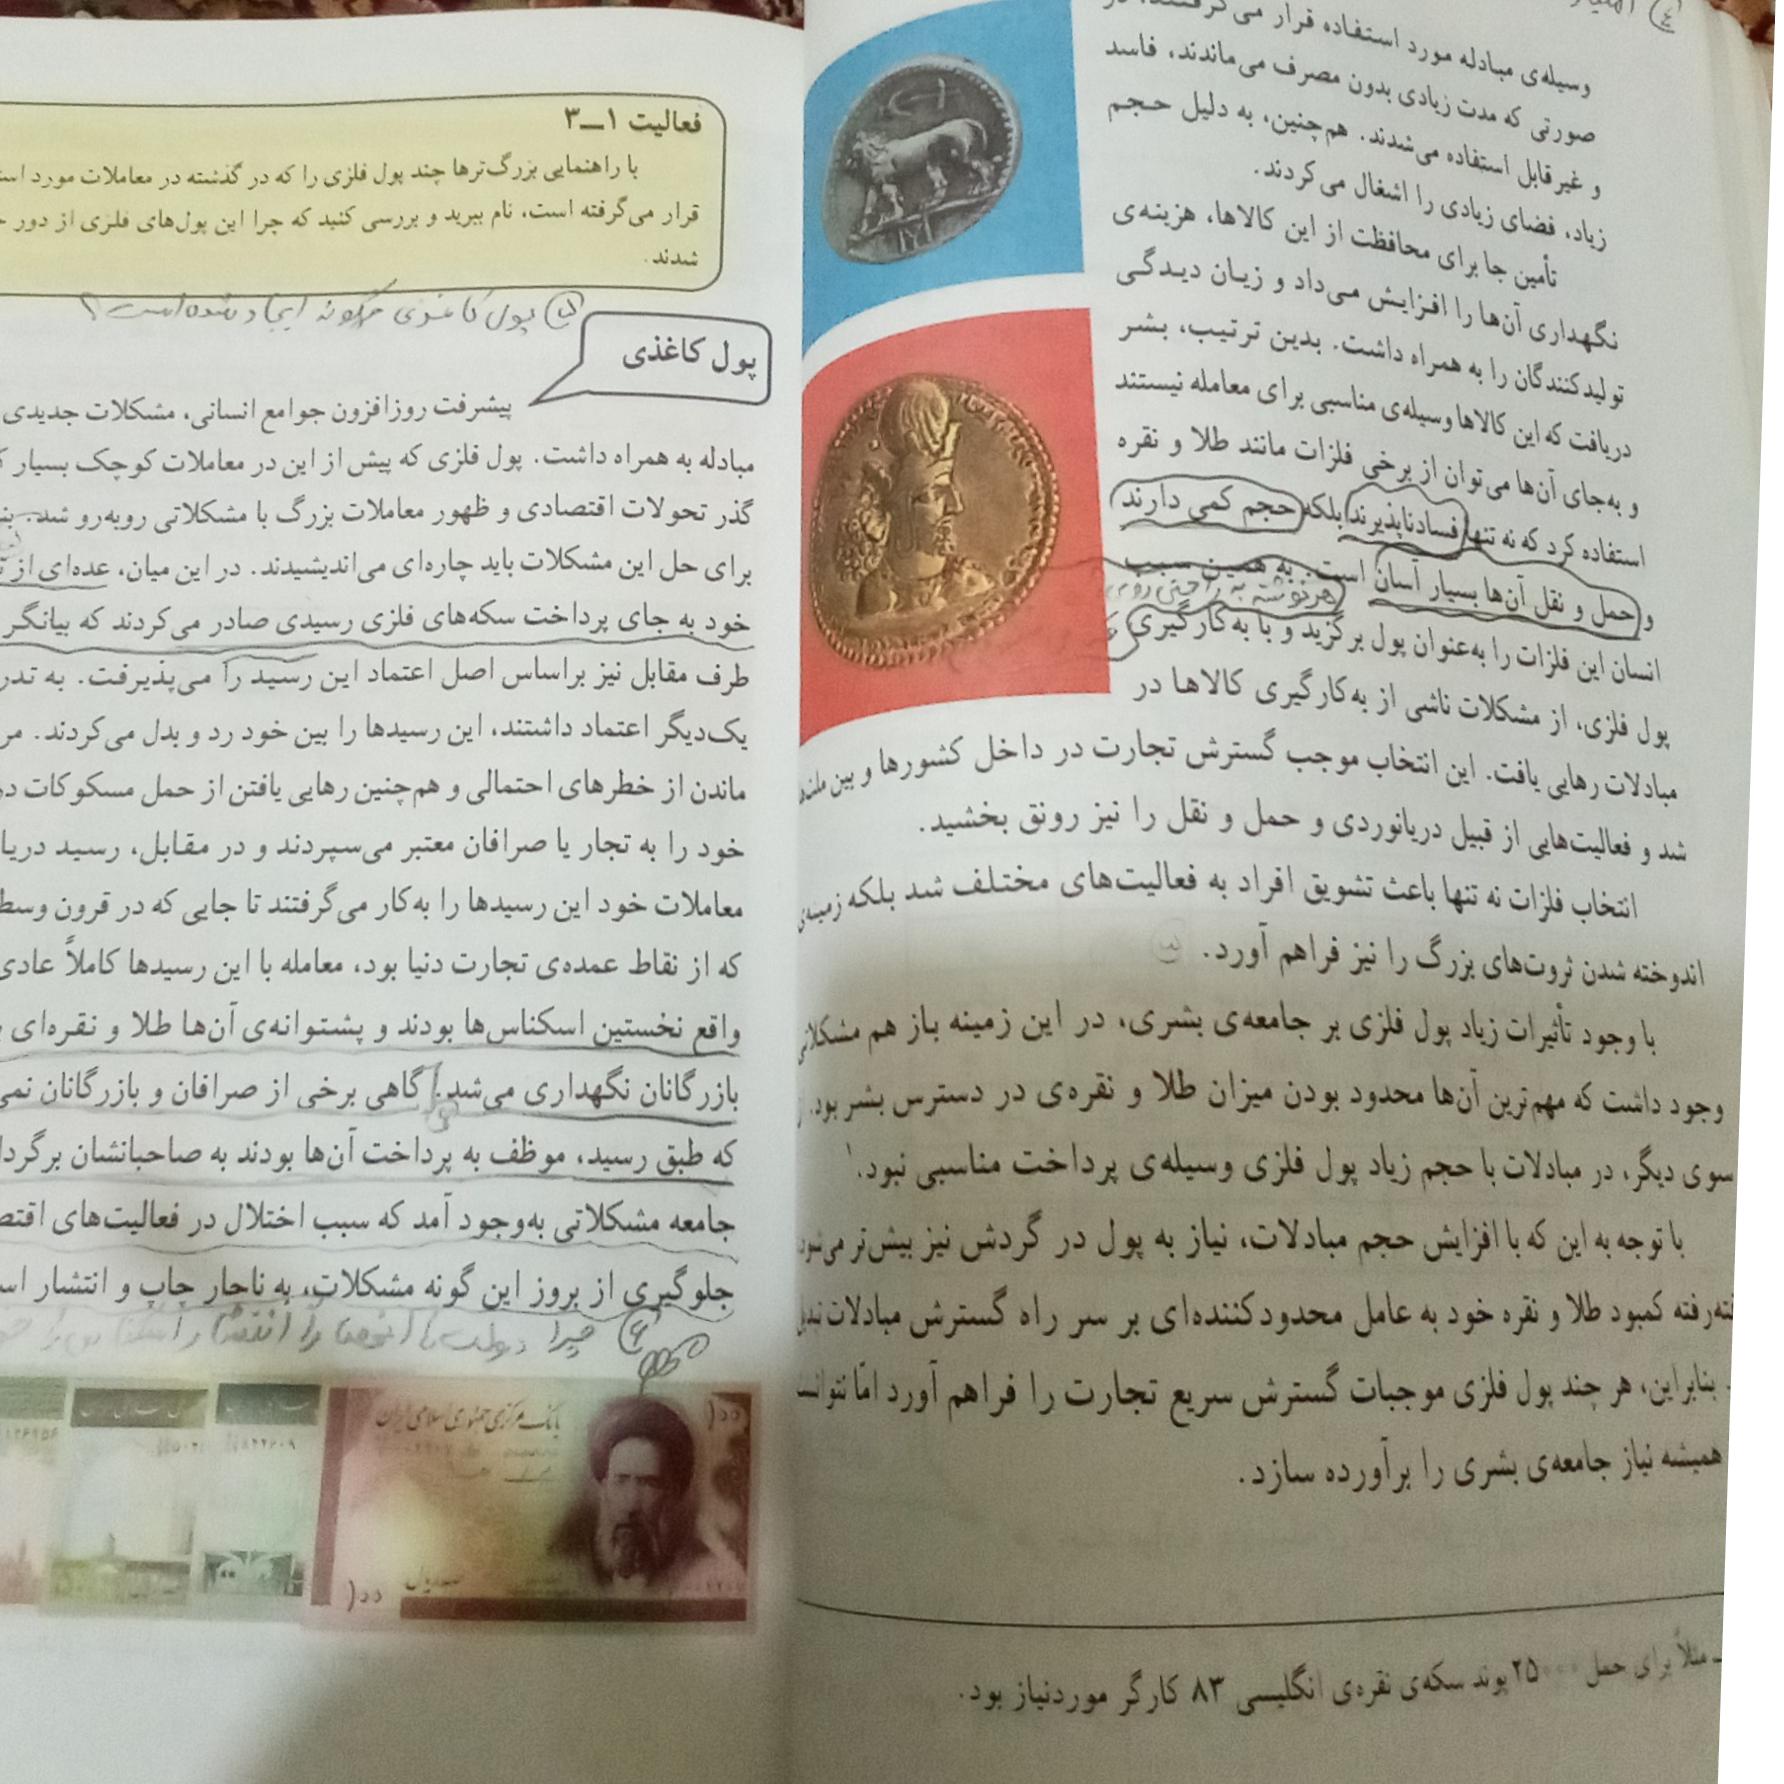 وسیله‌ی مبادله مورد استفاده قرار می‌گرفتند، در
صورتی که مدت زیادی بدون مصرف می‌ماندند، فاسد
و غیرقابل استفاده می‌شدند. هم‌چنین، به دلیل حجم
زیاد، فضای زیادی را اشغال می‌کردند.
تأمین جا برای محافظت از این کالاها، هزینه‌ی
نگهداری آن‌ها را افزایش می‌داد و زیان دیدگی
تولیدکنندگان را به همراه داشت. بدین ترتیب، بشر
دریافت که این کالاها وسیله‌ی مناسبی برای معامله نیستند
و به‌جای آن‌ها می‌توان از برخی فلزات مانند طلا و نقره
استفاده کرد که نه تنها فسادناپذیرند بلکه حجم کمی دارند
و حمل و نقل آن‌ها بسیار آسان است. به همین سبب
هر نوشته به راحتی روی
انسان این فلزات را به‌عنوان پول برگزید و با به‌کارگیری
پول فلزی، از مشکلات ناشی از به‌کارگیری کالاها در
مبادلات رهایی یافت. این انتخاب موجب گسترش تجارت در داخل کشورها و بین ملت‌ها
شد و فعالیت‌هایی از قبیل دریانوردی و حمل و نقل را نیز رونق بخشید.
انتخاب فلزات نه تنها باعث تشویق افراد به فعالیت‌های مختلف شد بلکه زمینه‌ی
اندوخته شدن ثروت‌های بزرگ را نیز فراهم آورد.
با وجود تأثیرات زیاد پول فلزی بر جامعه‌ی بشری، در این زمینه باز هم مشکلاتی
وجود داشت که مهم‌ترین آن‌ها محدود بودن میزان طلا و نقره‌ی در دسترس بشر بود. از
سوی دیگر، در مبادلات با حجم زیاد پول فلزی وسیله‌ی پرداخت مناسبی نبود.۱
با توجه به این که با افزایش حجم مبادلات، نیاز به پول در گردش نیز بیش‌تر می‌شود
رفته کمبود طلا و نقره خود به عامل محدودکننده‌ای بر سر راه گسترش مبادلات تبدیل
بنابراین، هر چند پول فلزی موجبات گسترش سریع تجارت را فراهم آورد امّا نتوانست
همیشه نیاز جامعه‌ی بشری را برآورده سازد.
ـ مثلاً برای حمل ۲۵۰۰۰ پوند سکه‌ی نقره‌ی انگلیسی ۸۳ کارگر موردنیاز بود.
فعالیت ۱ــ۳
با راهنمایی بزرگ‌ترها چند پول فلزی را که در گذشته در معاملات مورد
قرار می‌گرفته است، نام ببرید و بررسی کنید که چرا این پول‌های فلزی از دور
شدند.
پول کاغذی چگونه ایجاد شده است؟
پول کاغذی
پیشرفت روزافزون جوامع انسانی، مشکلات جدیدی
مبادله به همراه داشت. پول فلزی که پیش از این در معاملات کوچک بسیار
گذر تحولات اقتصادی و ظهور معاملات بزرگ با مشکلاتی روبه‌رو شد.
برای حل این مشکلات باید چاره‌ای می‌اندیشیدند. در این میان، عده‌ای از
خود به جای پرداخت سکه‌های فلزی رسیدی صادر می‌کردند که بیانگر
طرف مقابل نیز براساس اصل اعتماد این رسید را می‌پذیرفت. به تدر
یک‌دیگر اعتماد داشتند، این رسیدها را بین خود رد و بدل می‌کردند. مر
ماندن از خطرهای احتمالی و هم‌چنین رهایی یافتن از حمل مسکوکات
خود را به تجار یا صرافان معتبر می‌سپردند و در مقابل، رسید دریا
معاملات خود این رسیدها را به‌کار می‌گرفتند تا جایی که در قرون وسط
که از نقاط عمده‌ی تجارت دنیا بود، معامله با این رسیدها کاملاً عادی
واقع نخستین اسکناس‌ها بودند و پشتوانه‌ی آن‌ها طلا و نقره‌ای
بازرگانان نگهداری می‌شد. گاهی برخی از صرافان و بازرگانان نمی
که طبق رسید، موظف به پرداخت آن‌ها بودند به صاحبانشان برگردا
جامعه مشکلاتی به‌وجود آمد که سبب اختلال در فعالیت‌های اقتص
جلوگیری از بروز این گونه مشکلات، به ناچار چاپ و انتشار اس
چرا دولت‌ها
بانک مرکزی جمهوری اسلامی ایران
۱۰۰
۱۰۰